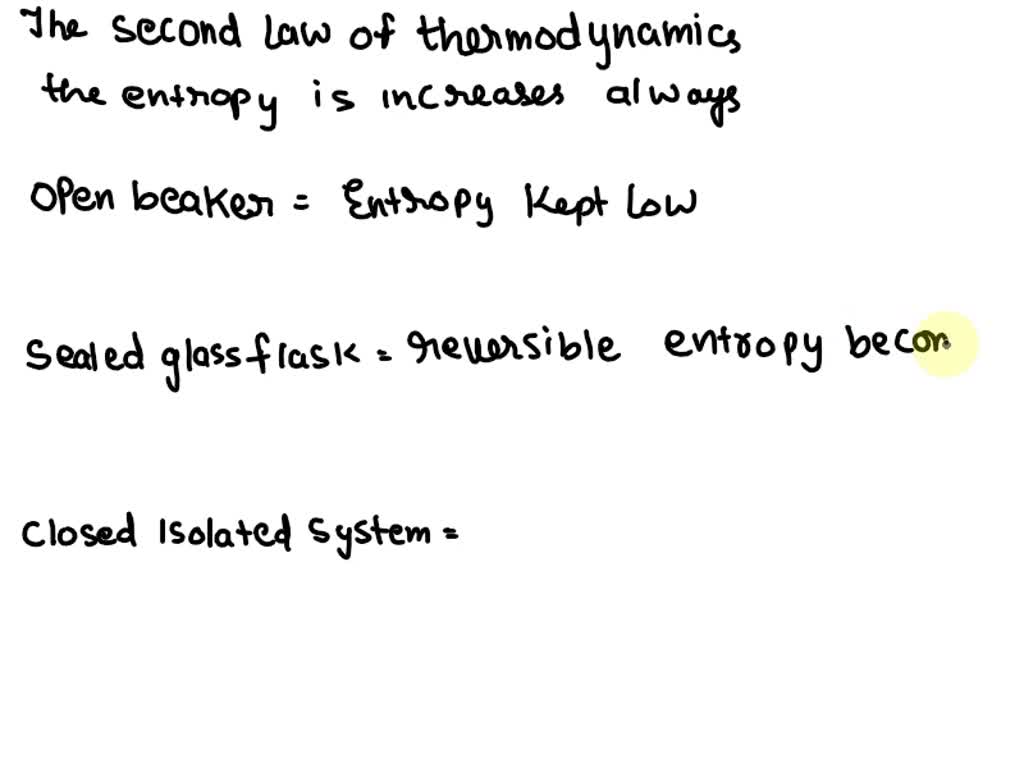 The second law of thermodynamics
the entropy is increases always
open beaker = Entropy Kept low
Sealed glass flask = reversible entropy becom
Closed Isolated System =